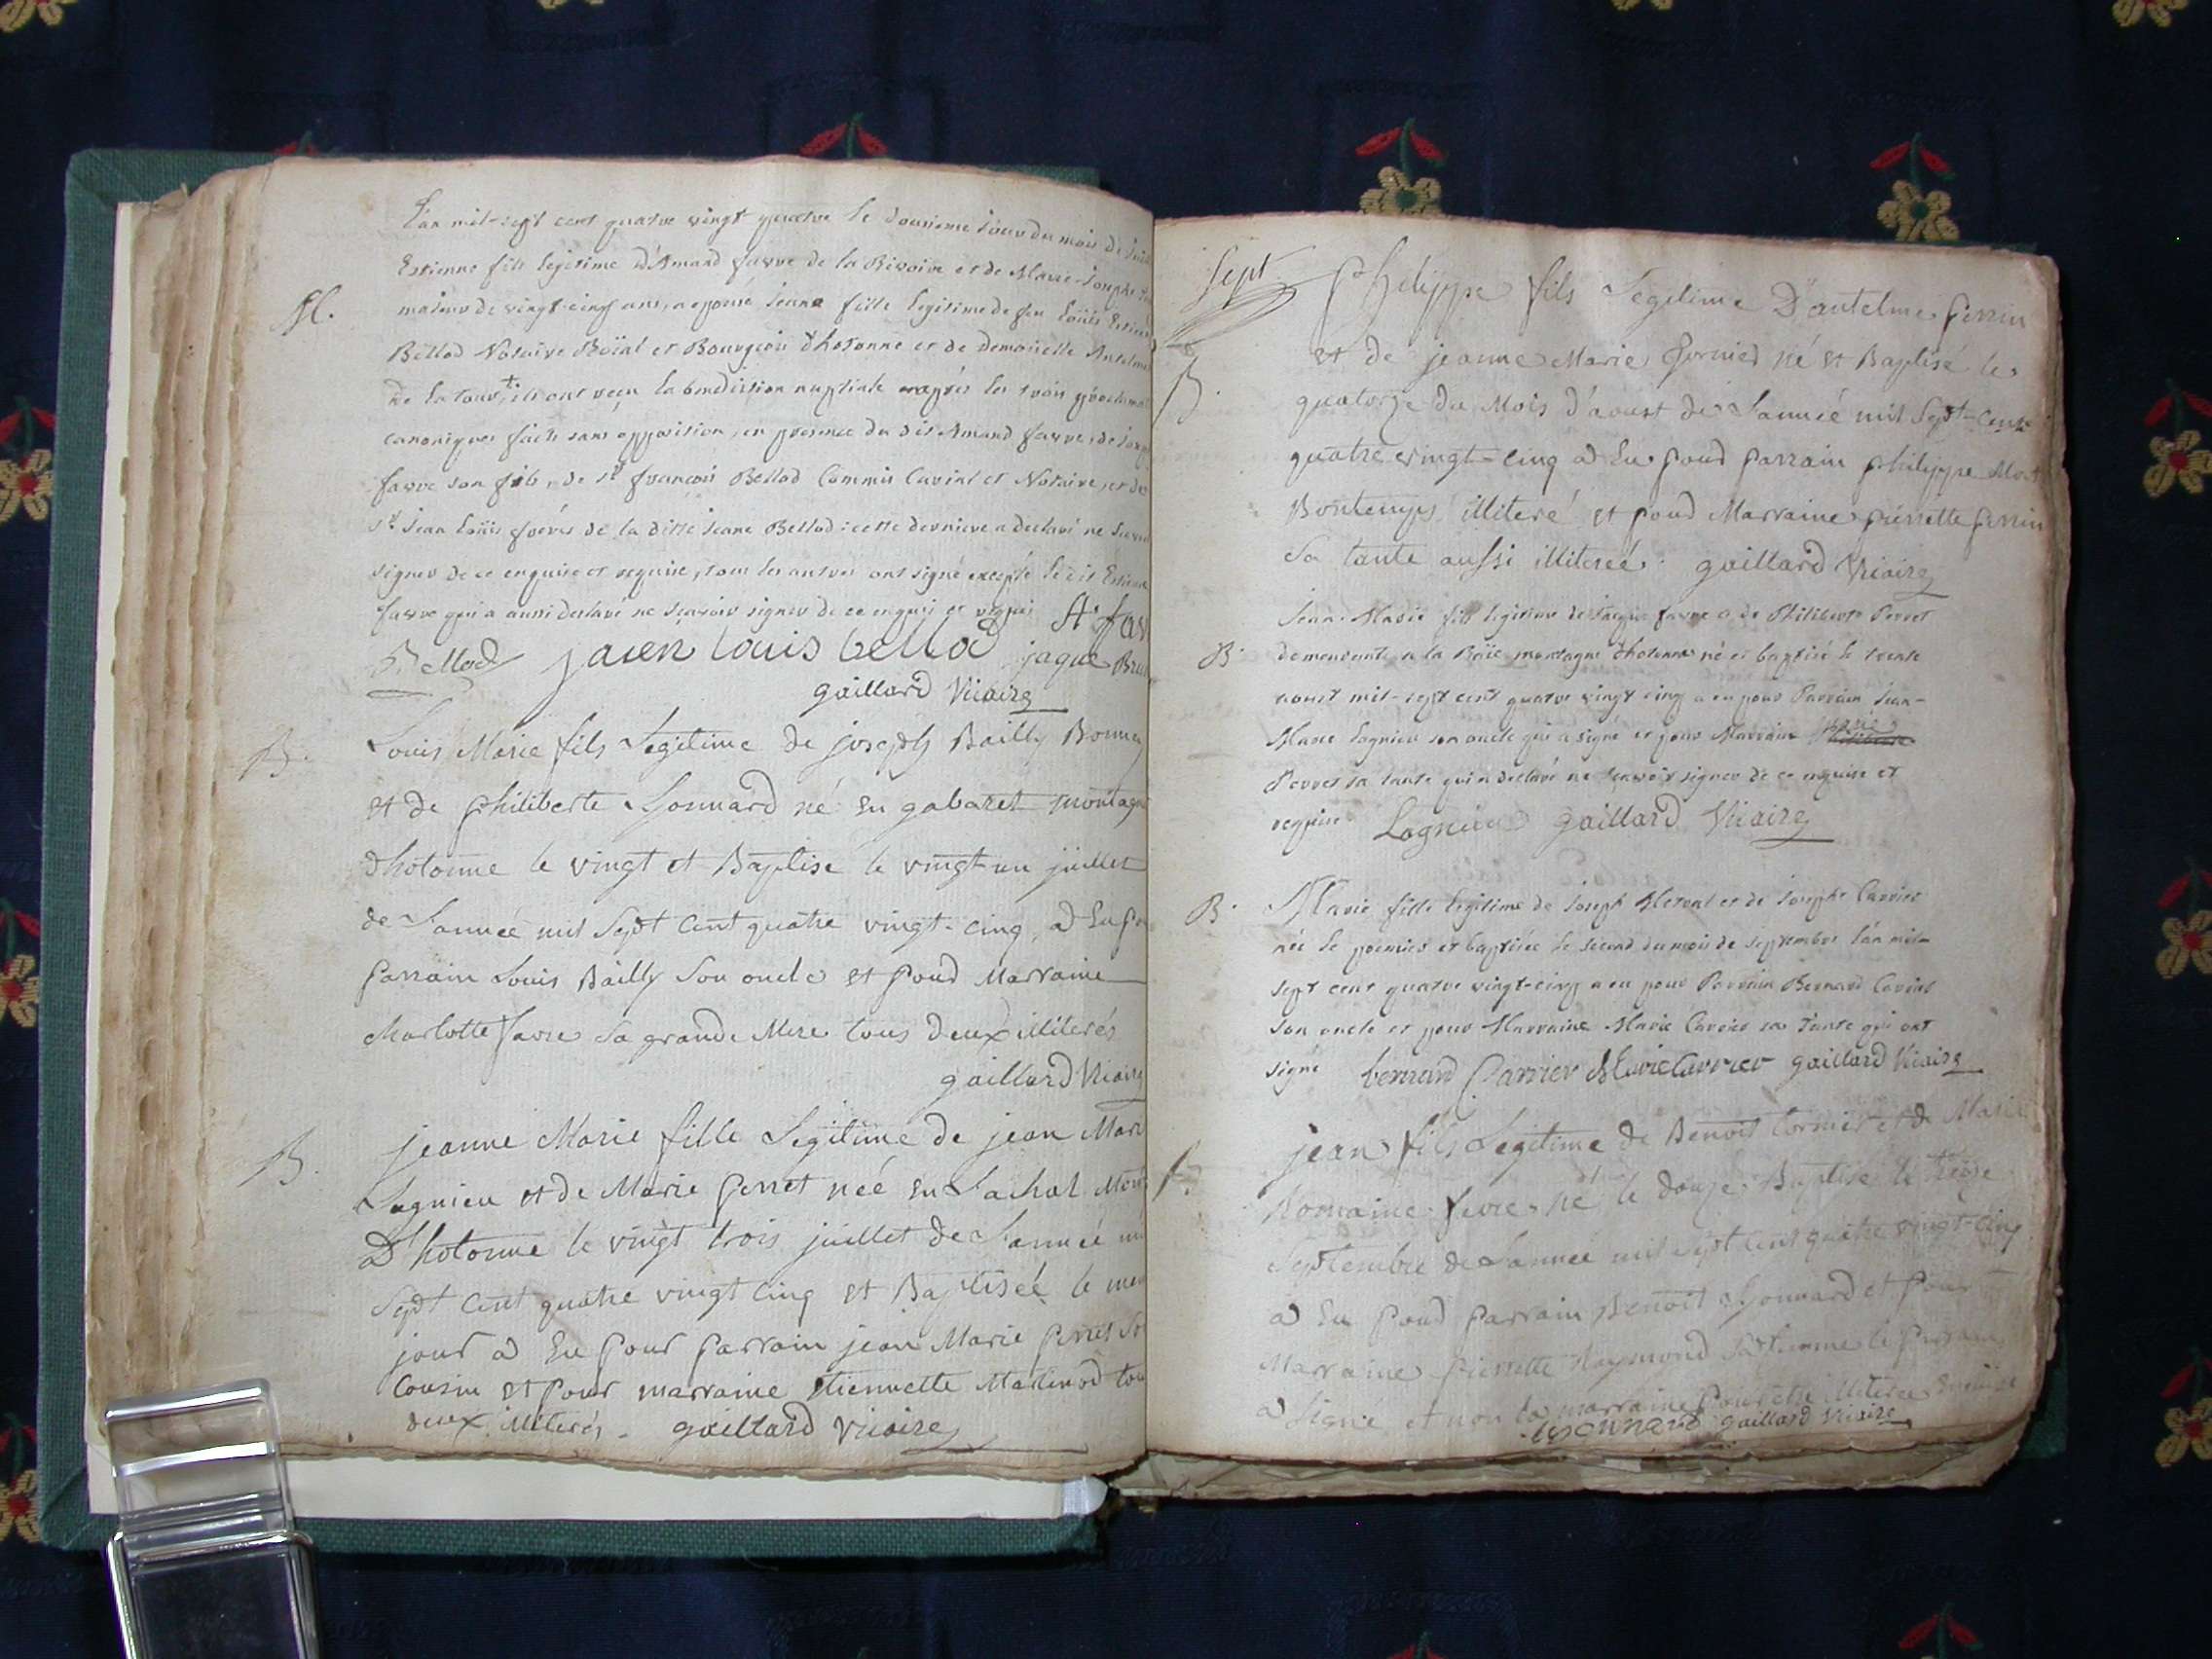 L'an mil-sept cent quatre vingt quatre le douzieme jour du mois de
Estienne fils legitime d'Amand favre de la Rivoire et de Marie-Josephe
M. majeur de vingt-cinq ans, a epousé Jeane fille legitime de feu Loüis
Bellod Notaire Roïal et Bourgeois d'hotonne et de demoiselle Antelme
de la tour, ils ont reçu la benediction nuptiale après les trois proclam
canoniques faite sans opposition, en presence du dit Amand favre, de
favre son fils, de sr françois Bellod Commis Curial et Notaire, et de
sr Jean Loüis freres de la ditte Jeane Bellod : cette derniere a declaré ne
signer de ce enquise et requise, tous les autres ont signé excepté le dit Estienne
favre qui a aussi declaré ne sçavoir signer de ce enquis et requis A. fav
Bellod jaien louis bellod jaque
gaillard Vicaire
B. Louis Marie fils Legitime de joseph Bailly
et de philiberte Jonnard né en gabaret montagn
d'hotonne le vingt et Baptise le vingt-un juillet
de L'année mil Sept Cent quatre vingt-cinq, a Eu
parrain Louis Bailly Son oncle et pour Marraine
charlotte favre Sa grande Mere tous deux illiterés
gaillard Vicaire
B. jeanne Marie fille Legitime de jean Mari
Lagnieu et de Marie perret neé en Lachal
D'hotonne le vingt trois juillet de L'année
Sept Cent quatre vingt cinq et Baptiseé le
jour a Eu pour parrain jean Marie perret
Cousin et pour marraine Etiennette Martinod
deux illiterés. gaillard Vicaire
Sept.
philippe fils Legitime D'antelme perrin
B. et de jeanne Marie né et Baptisé le
quatorze du Mois d'aoust de L'anneé mil Sept-Cent
quatre vingt-cinq a Eu pour parrain philippe
Bontemps illiteré et pour Marraine pierrette perrin
Sa tante aussi illitereé. gaillard Vicaire
Jean-Marie fils legitime de Jacque favre et de Philiberte Perret
B. demeurants a la montagne d'hotonne né et baptisé le trente
aoust mil-sept cent quatre vingt cinq a eu pour Parrain Jean-
Marie Lagnieu son oncle qui a signé et pour Marraine Marie
Perret sa tante qui a declaré ne sçavoir signer de ce enquise et
requise Lagnieu gaillard Vicaire
B. Marie fille legitime de Joseph et de Josephe Carrier
née le premier et baptisée le second du mois de septembre l'an mil-
sept cent quatre vingt-cinq a eu pour Parrain Bernard Carrier
son oncle et pour Marraine Marie Carrier sa tante qui ont
signé bernard Carrier Marie Carrier gaillard Vicaire
B. jean fils Legitime de Benoit Cornier et de Marie
Romaine favre né le douze Baptise le treize
Septembre de L'anneé mil Sept Cent quatre vingt-cinq
a Eu pour parrain Benoit Jonnard et pour
Marraine pierrette Raymond Sa femme le parrain
a Signé et non la marraine pour etre illitereé
gaillard Vicaire